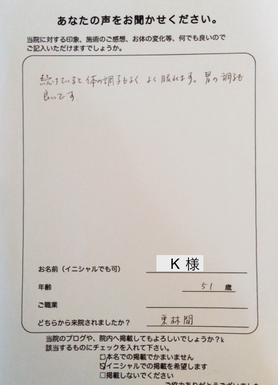 あなたの声をお聞かせください。
当院に対する印象、施術のご感想、お体の変化等、何でも良いので
ご記入いただけますでしょうか。
続けていると体の調子もよく よく眠れます。胃の調子も
良いです
お名前(イニシャルでも可) K 様
年齢 51 歳
ご職業
どちらから来院されましたか? 東林間
当院のブログや、院内へ掲載してもよろしいでしょうか?
該当するものにチェックを入れて下さい。
□本名での掲載でかまいません
☑イニシャルでの掲載を希望します
□掲載しないでください